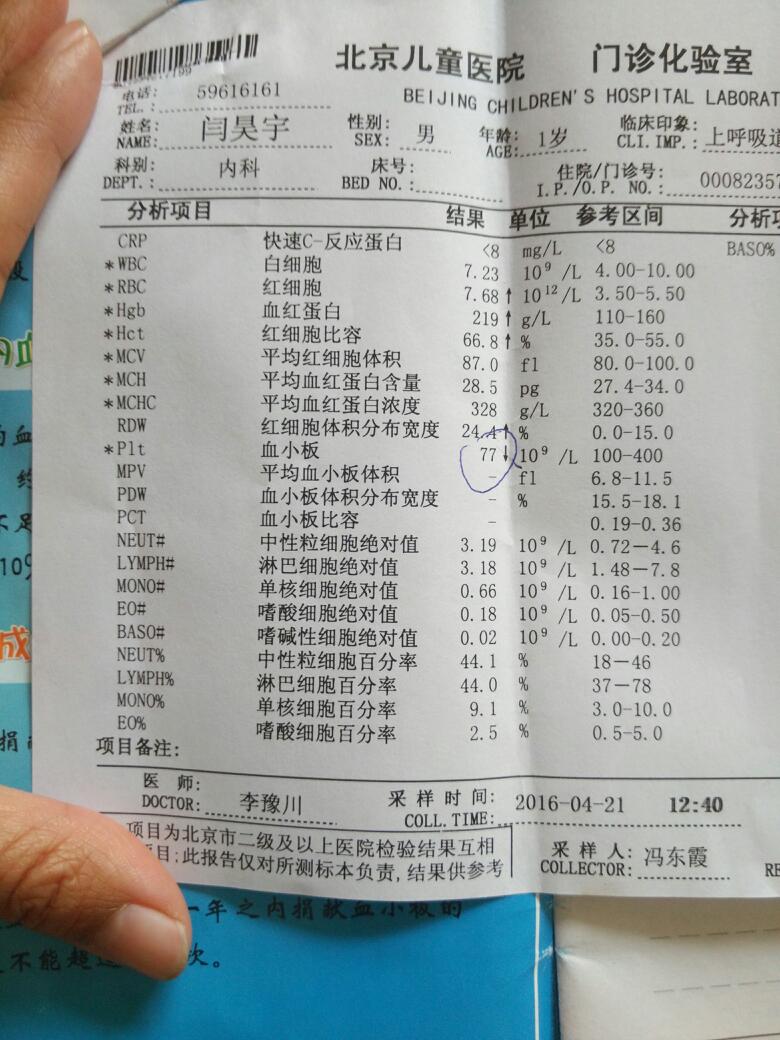 北京儿童医院 门诊化验室
电话: 59616161
TEL.:
BEIJING CHILDREN'S HOSPITAL LABORAT
姓名: 闫昊宇 性别: 男 年龄: 1岁 临床印象: 上呼吸道
NAME: SEX: AGE: CLI.IMP.:
科别: 内科 床号: 住院/门诊号: 00082357
DEPT.: BED NO.: I.P./O.P. NO.:
分析项目 结果 单位 参考区间 分析项
CRP 快速C-反应蛋白 <8 mg/L <8 BASO%
*WBC 白细胞 7.23 10⁹ /L 4.00-10.00
*RBC 红细胞 7.68↑ 10¹²/L 3.50-5.50
*Hgb 血红蛋白 219↑ g/L 110-160
*Hct 红细胞比容 66.8↑ % 35.0-55.0
*MCV 平均红细胞体积 87.0 fl 80.0-100.0
*MCH 平均血红蛋白含量 28.5 pg 27.4-34.0
*MCHC 平均血红蛋白浓度 328 g/L 320-360
RDW 红细胞体积分布宽度 24.4↑ % 0.0-15.0
*Plt 血小板 77↓ 10⁹ /L 100-400
MPV 平均血小板体积 - fl 6.8-11.5
PDW 血小板体积分布宽度 - % 15.5-18.1
PCT 血小板比容 - 0.19-0.36
NEUT# 中性粒细胞绝对值 3.19 10⁹ /L 0.72-4.6
LYMPH# 淋巴细胞绝对值 3.18 10⁹ /L 1.48-7.8
MONO# 单核细胞绝对值 0.66 10⁹ /L 0.16-1.00
EO# 嗜酸细胞绝对值 0.18 10⁹ /L 0.05-0.50
BASO# 嗜碱性细胞绝对值 0.02 10⁹ /L 0.00-0.20
NEUT% 中性粒细胞百分率 44.1 % 18-46
LYMPH% 淋巴细胞百分率 44.0 % 37-78
MONO% 单核细胞百分率 9.1 % 3.0-10.0
EO% 嗜酸细胞百分率 2.5 % 0.5-5.0
项目备注:
医 师: 李豫川 采 样 时 间: 2016-04-21 12:40
DOCTOR: COLL.TIME:
项目为北京市二级及以上医院检验结果互相
项目:此报告仅对所测标本负责,结果供参考
采 样 人: 冯东霞
COLLECTOR: RE
一年之内捐献血小板的
不能超 次。